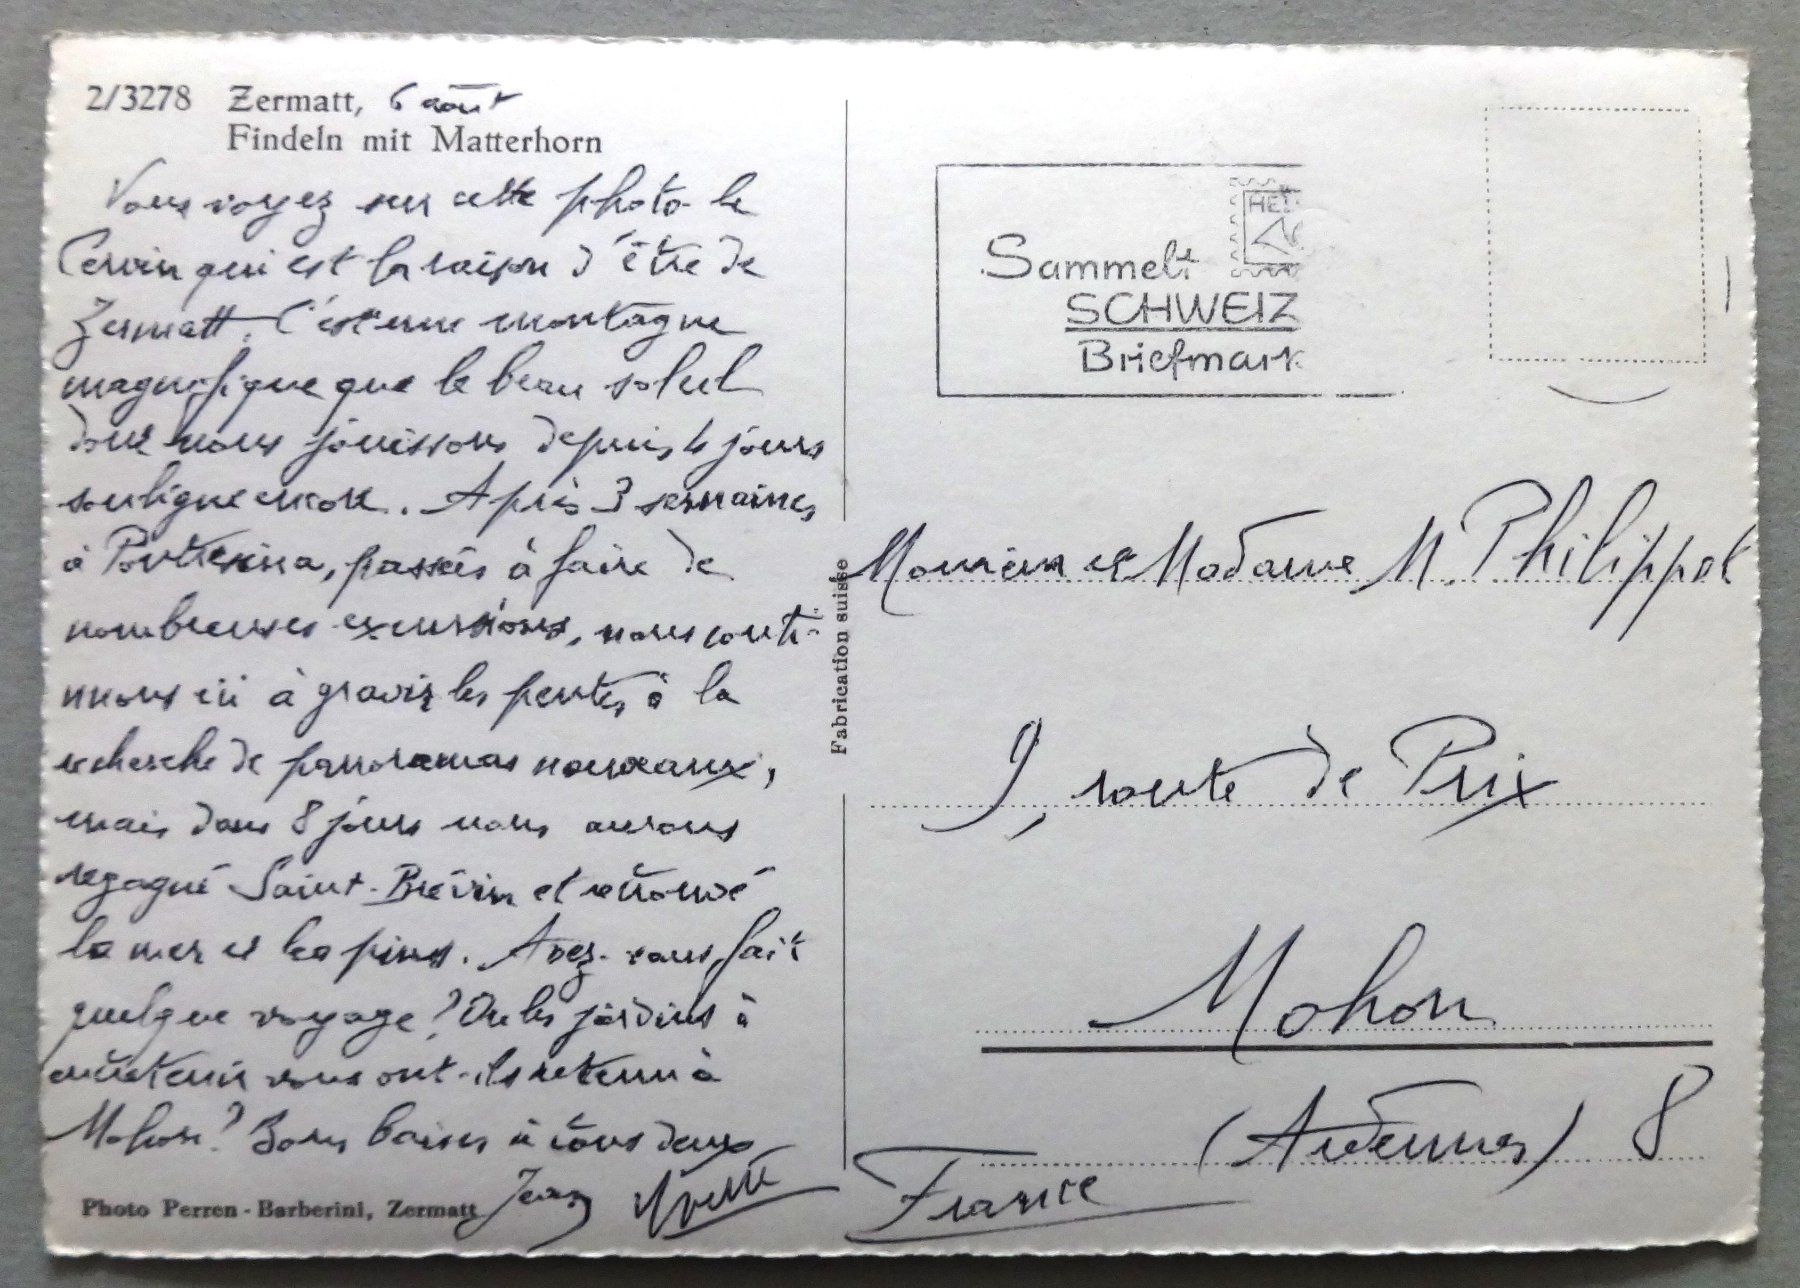 2/3278 Zermatt, 6 août
Findeln mit Matterhorn
Vous voyez sur cette photo le
Cervin qui est la raison d'être de
Zermatt. C'est une montagne
magnifique que le beau soleil
dont nous jouissons depuis 4 jours
souligne encore. Après 3 semaines
à Pontresina, passées à faire de
nombreuses excursions, nous conti-
nuons ici à gravir les pentes à la
recherche de panoramas nouveaux,
mais dans 8 jours nous aurons
regagné Saint-Brévin et retrouvé
la mer et les pins. Avez-vous fait
quelque voyage? Ou les jardins à
entretenir vous ont-ils retenu à
Mohon? Bons baisers à tous deux
Jean Yvette
Photo Perren-Barberini, Zermatt
Fabrication suisse
HEL
Sammelt
SCHWEIZ
Briefmark
Monsieur et Madame M. Philippot
9, route de Prix
Mohon
(Ardennes) 8
France